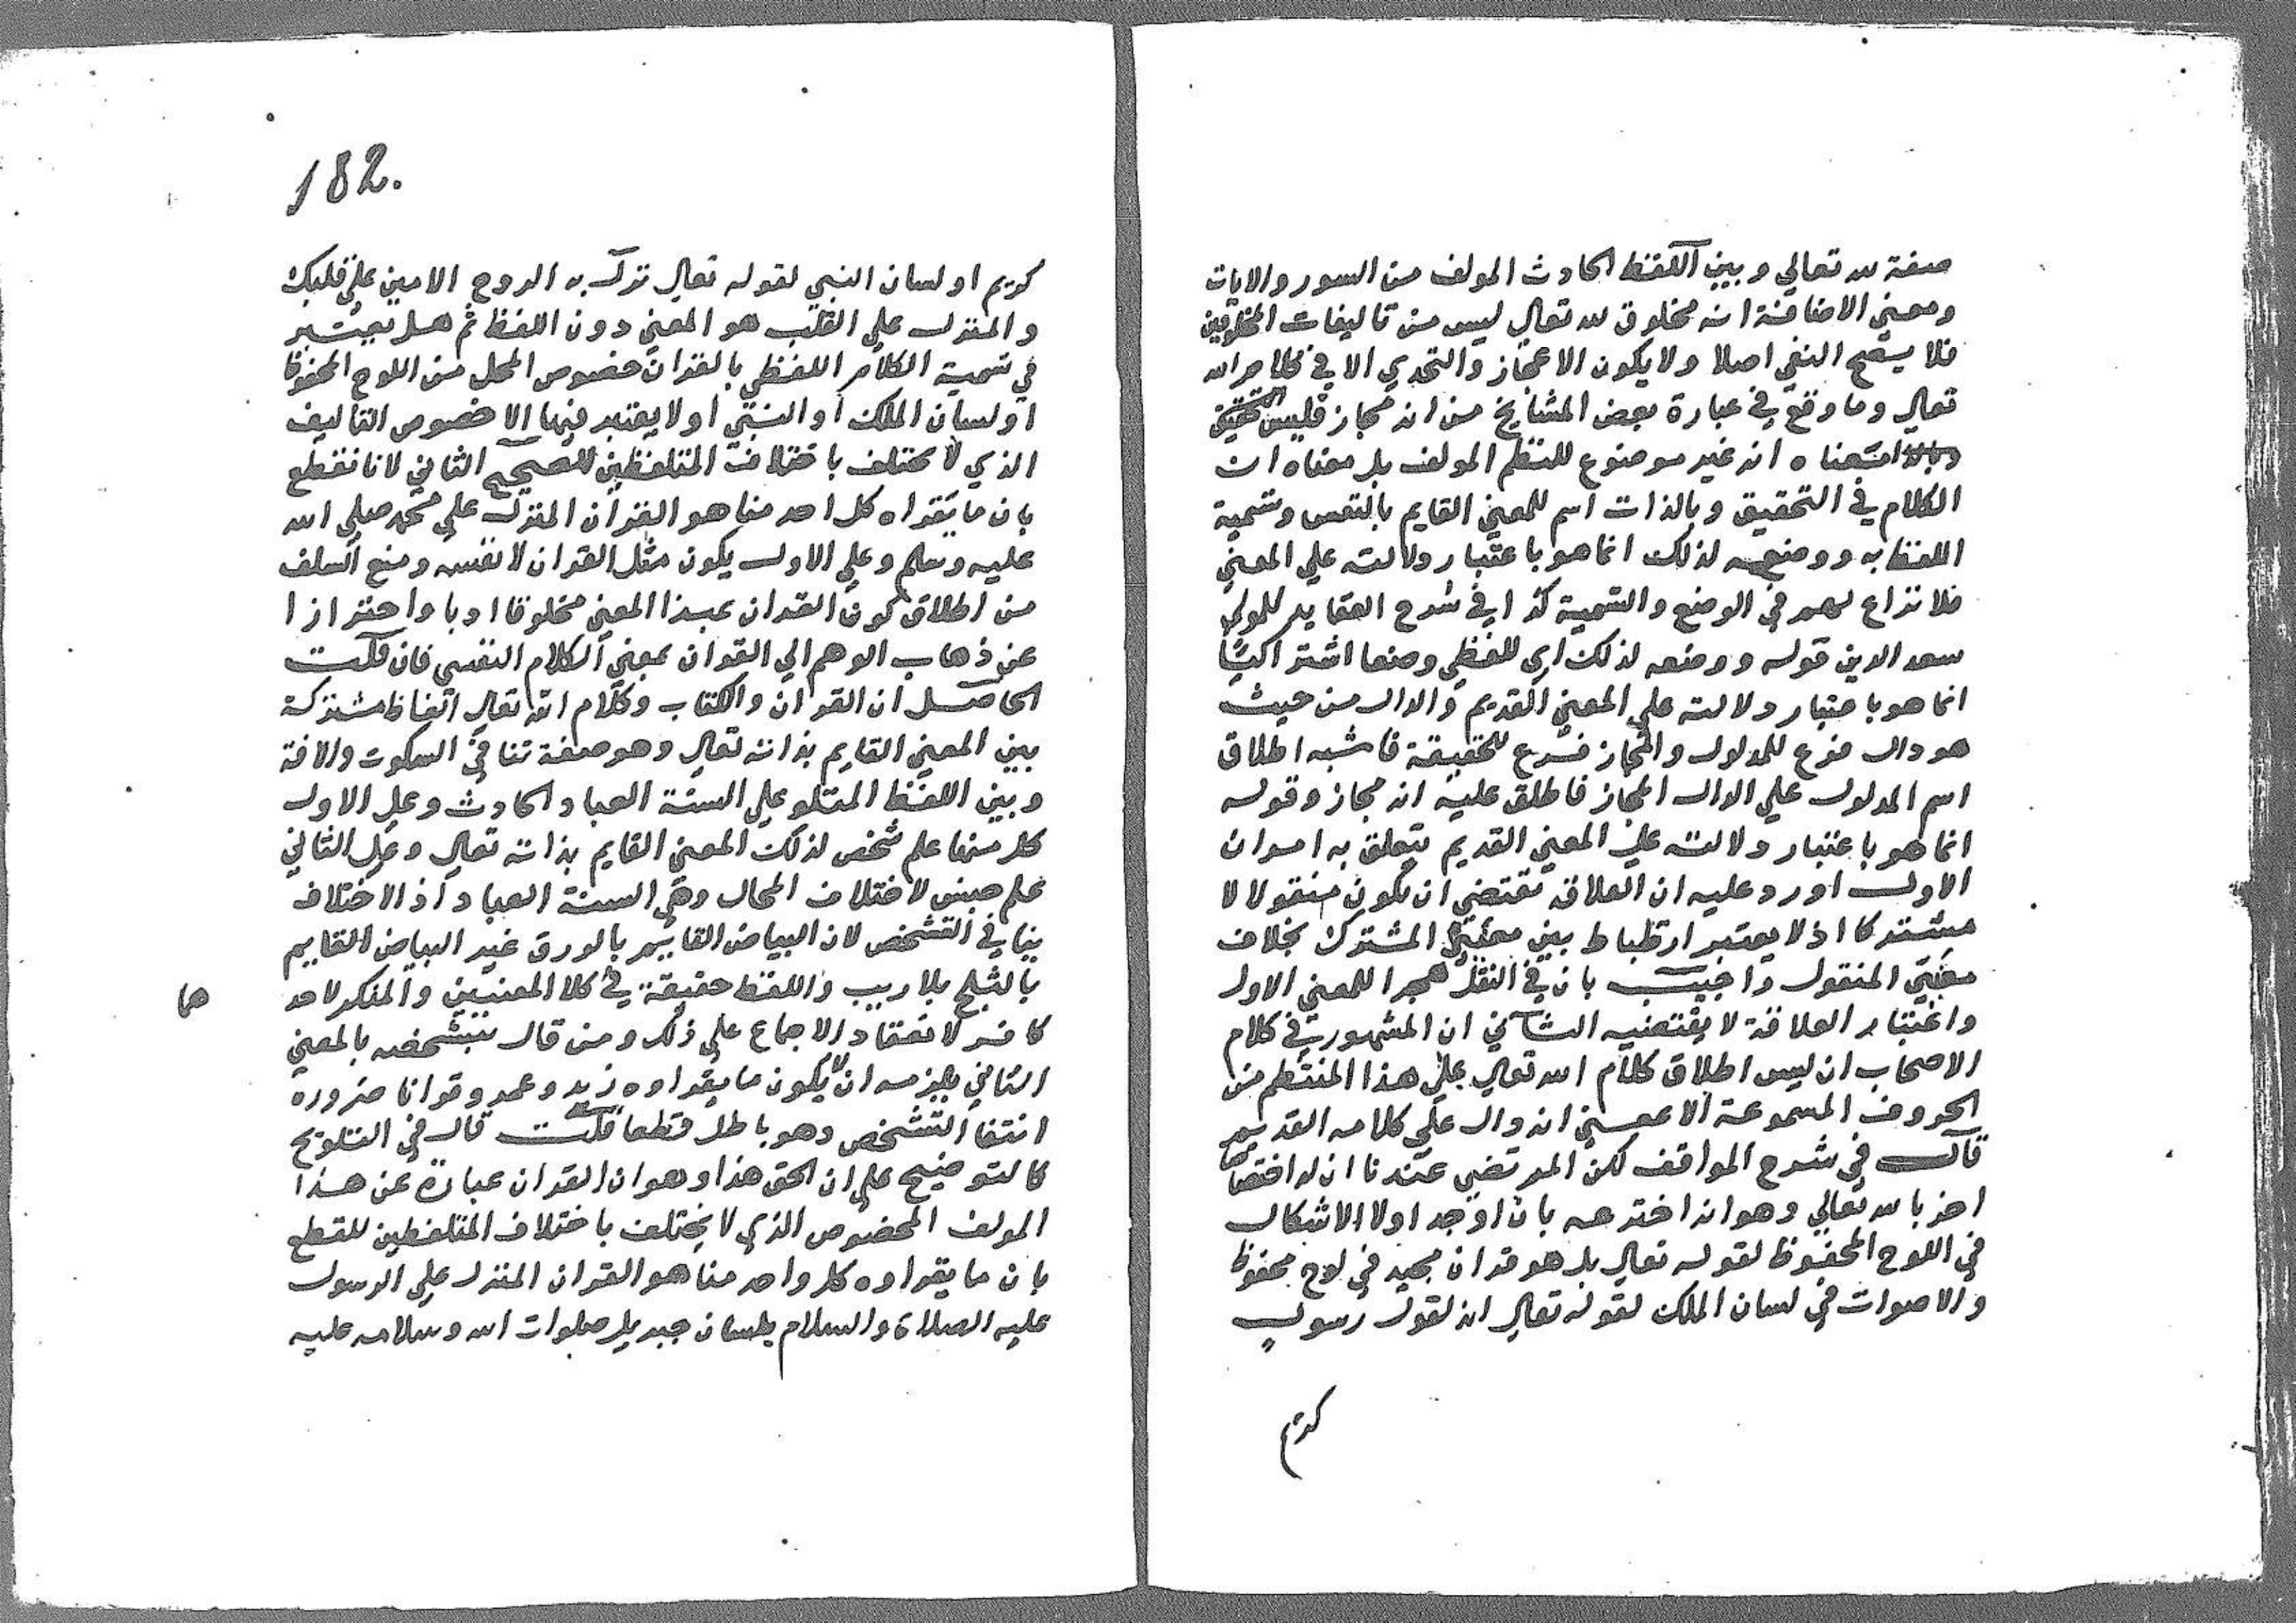 صفة لله تعالي وبين اللفظ الحادث المولف من السور والايات
ومعني الاضافة انه مخلوق لله تعالي ليس من تاليفات المخلوقين
فلا يصح النفي اصلا ولا يكون الاعجاز والتحدي الا في كلام الله
تعالي وما وقع في عبارة بعض المشايخ من انه مجاز فليس
معناه انه غير موضوع للنظم المولف بل معناه ان
الكلام في التحقيق وبالذات اسم للمعني القايم بالنفس وتسمية
اللفظ به ووضعه لذلك انما هو باعتبار دلالته علي المعني
فلا نزاع لهم في الوضع والتسمية كذا في شرح العقايد للمولي
سعد الدين قوله ووضعه لذلك اي للفظي وضعا اشتراكيا
انما هو باعتبار دلالته علي المعني القديم والدال من حيث
هو دال فرع للمدلول والمجاز فرع للحقيقة فاشبه اطلاق
اسم المدلول علي الدال المجاز فاطلق عليه انه مجاز وقوله
انما هو باعتبار دلالته علي المعني القديم يتعلق به امران
الاول اورد عليه ان العلاقة تقتضي ان يكون منقولا لا
مشتركا اذ لا يعتبر ارتطباط بين معنيي المشترك بخلاف
معنيي المنقول واجيب بان في النقل هجرا للمعني الاول
واعتبار العلاقة لا يقتضيه الثاني ان المشهور في كلام
الاصحاب ان ليس اطلاق كلام الله تعالي علي هذا المنتظم من
الحروف المسموعة الا بمعني انه دال علي كلامه القديم
قال في شرح المواقف لكن المرتضي عندنا ان له اختصاصا
اخر بالله تعالي وهو انه اخترعه بان اوجد اولا الاشكال
في اللوح المحفوظ لقوله تعالي بل هو قران مجيد في لوح محفوظ
والاصوات في لسان الملك لقوله تعالي انه لقول رسول
كريم
182.
كريم او لسان النبي لقوله تعالي نزل به الروح الامين علي قلبك
والمنزل علي القلب هو المعني دون اللفظ ثم هل يعتبر
في تسمية الكلام اللفظي بالقران خصوص المحل من اللوح المحفوظ
او لسان الملك او النبي او لا يعتبر فيها الا خصوص التاليف
الذي لا يختلف باختلاف المتلفظين الصحيح الثاني لانا نقطع
بان ما يقراه كل احد منا هو القران المنزل علي محمد صلي الله
عليه وسلم وعلي الاول يكون مثل القران لا نفسه ومنع السلف
من اطلاق كون القران بهذا المعني مخلوقا ادبا واحترازا
عن ذهاب الوهم الي القران بمعني الكلام النفسي فان قلت
الحاصل ان القران والكتاب وكلام الله تعالي الفاظ مشتركة
بين المعني القايم بذاته تعالي وهو صفة تنافي السكوت والافة
وبين اللفظ المتلو علي السنة العباد الحادث وعلي الاول
كل منها علم شخص لذلك المعني القايم بذاته تعالي وعلي الثاني
علم جنس لاختلاف المحال وهي السنة العباد اذ الاختلاف
ينافي التشخص لان البياض القايم بالورق غير البياض القايم
بالثلج بلا ريب واللفظ حقيقة في كلا المعنيين والمنكر لاحد
هما
كافر لانعقاد الاجماع علي ذلك ومن قال بتشخصه بالمعني
الثاني يلزمه ان لا يكون ما يقراوه زيد وعمرو قرانا ضرورة
انتفا التشخص وهو باطل قطعا قلت قال في التلويح
كالتوضيح علي ان الحق هذا وهو ان القران عبارة عن هذا
المولف المخصوص الذي لا يختلف باختلاف المتلفظين للقطع
بان ما يقراوه كل واحد منا هو القران المنزل علي الرسول
عليه الصلاة والسلام بلسان جبريل صلوات الله وسلامه عليه